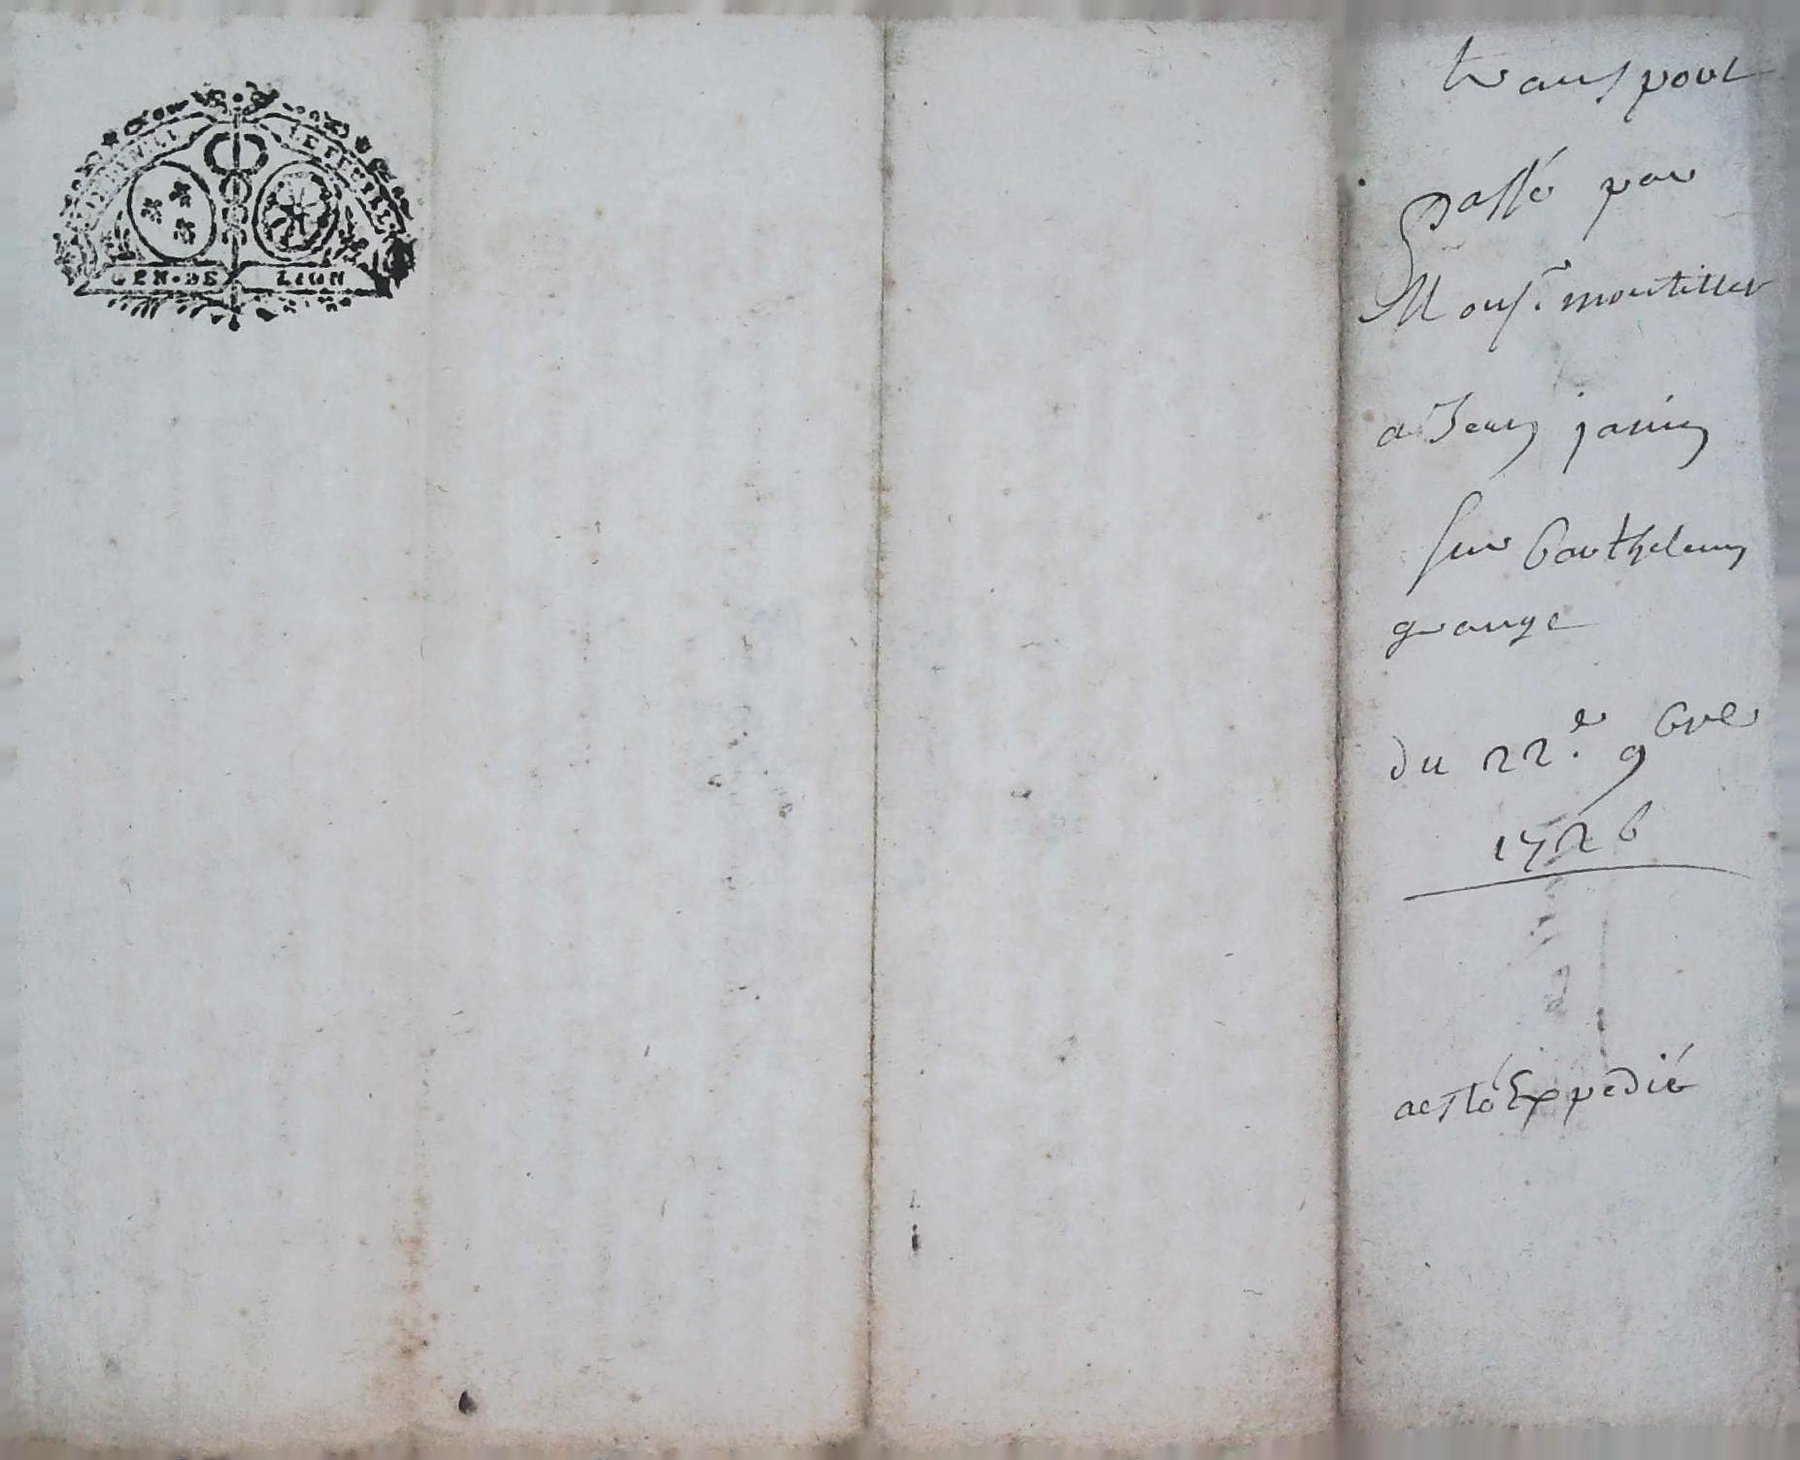 GEN. DE LION
transport
passé par
Monsr. montillet
a Jean janin
sur barthelemy
grange
du 22e. 9bre
1726
a esté Expedié